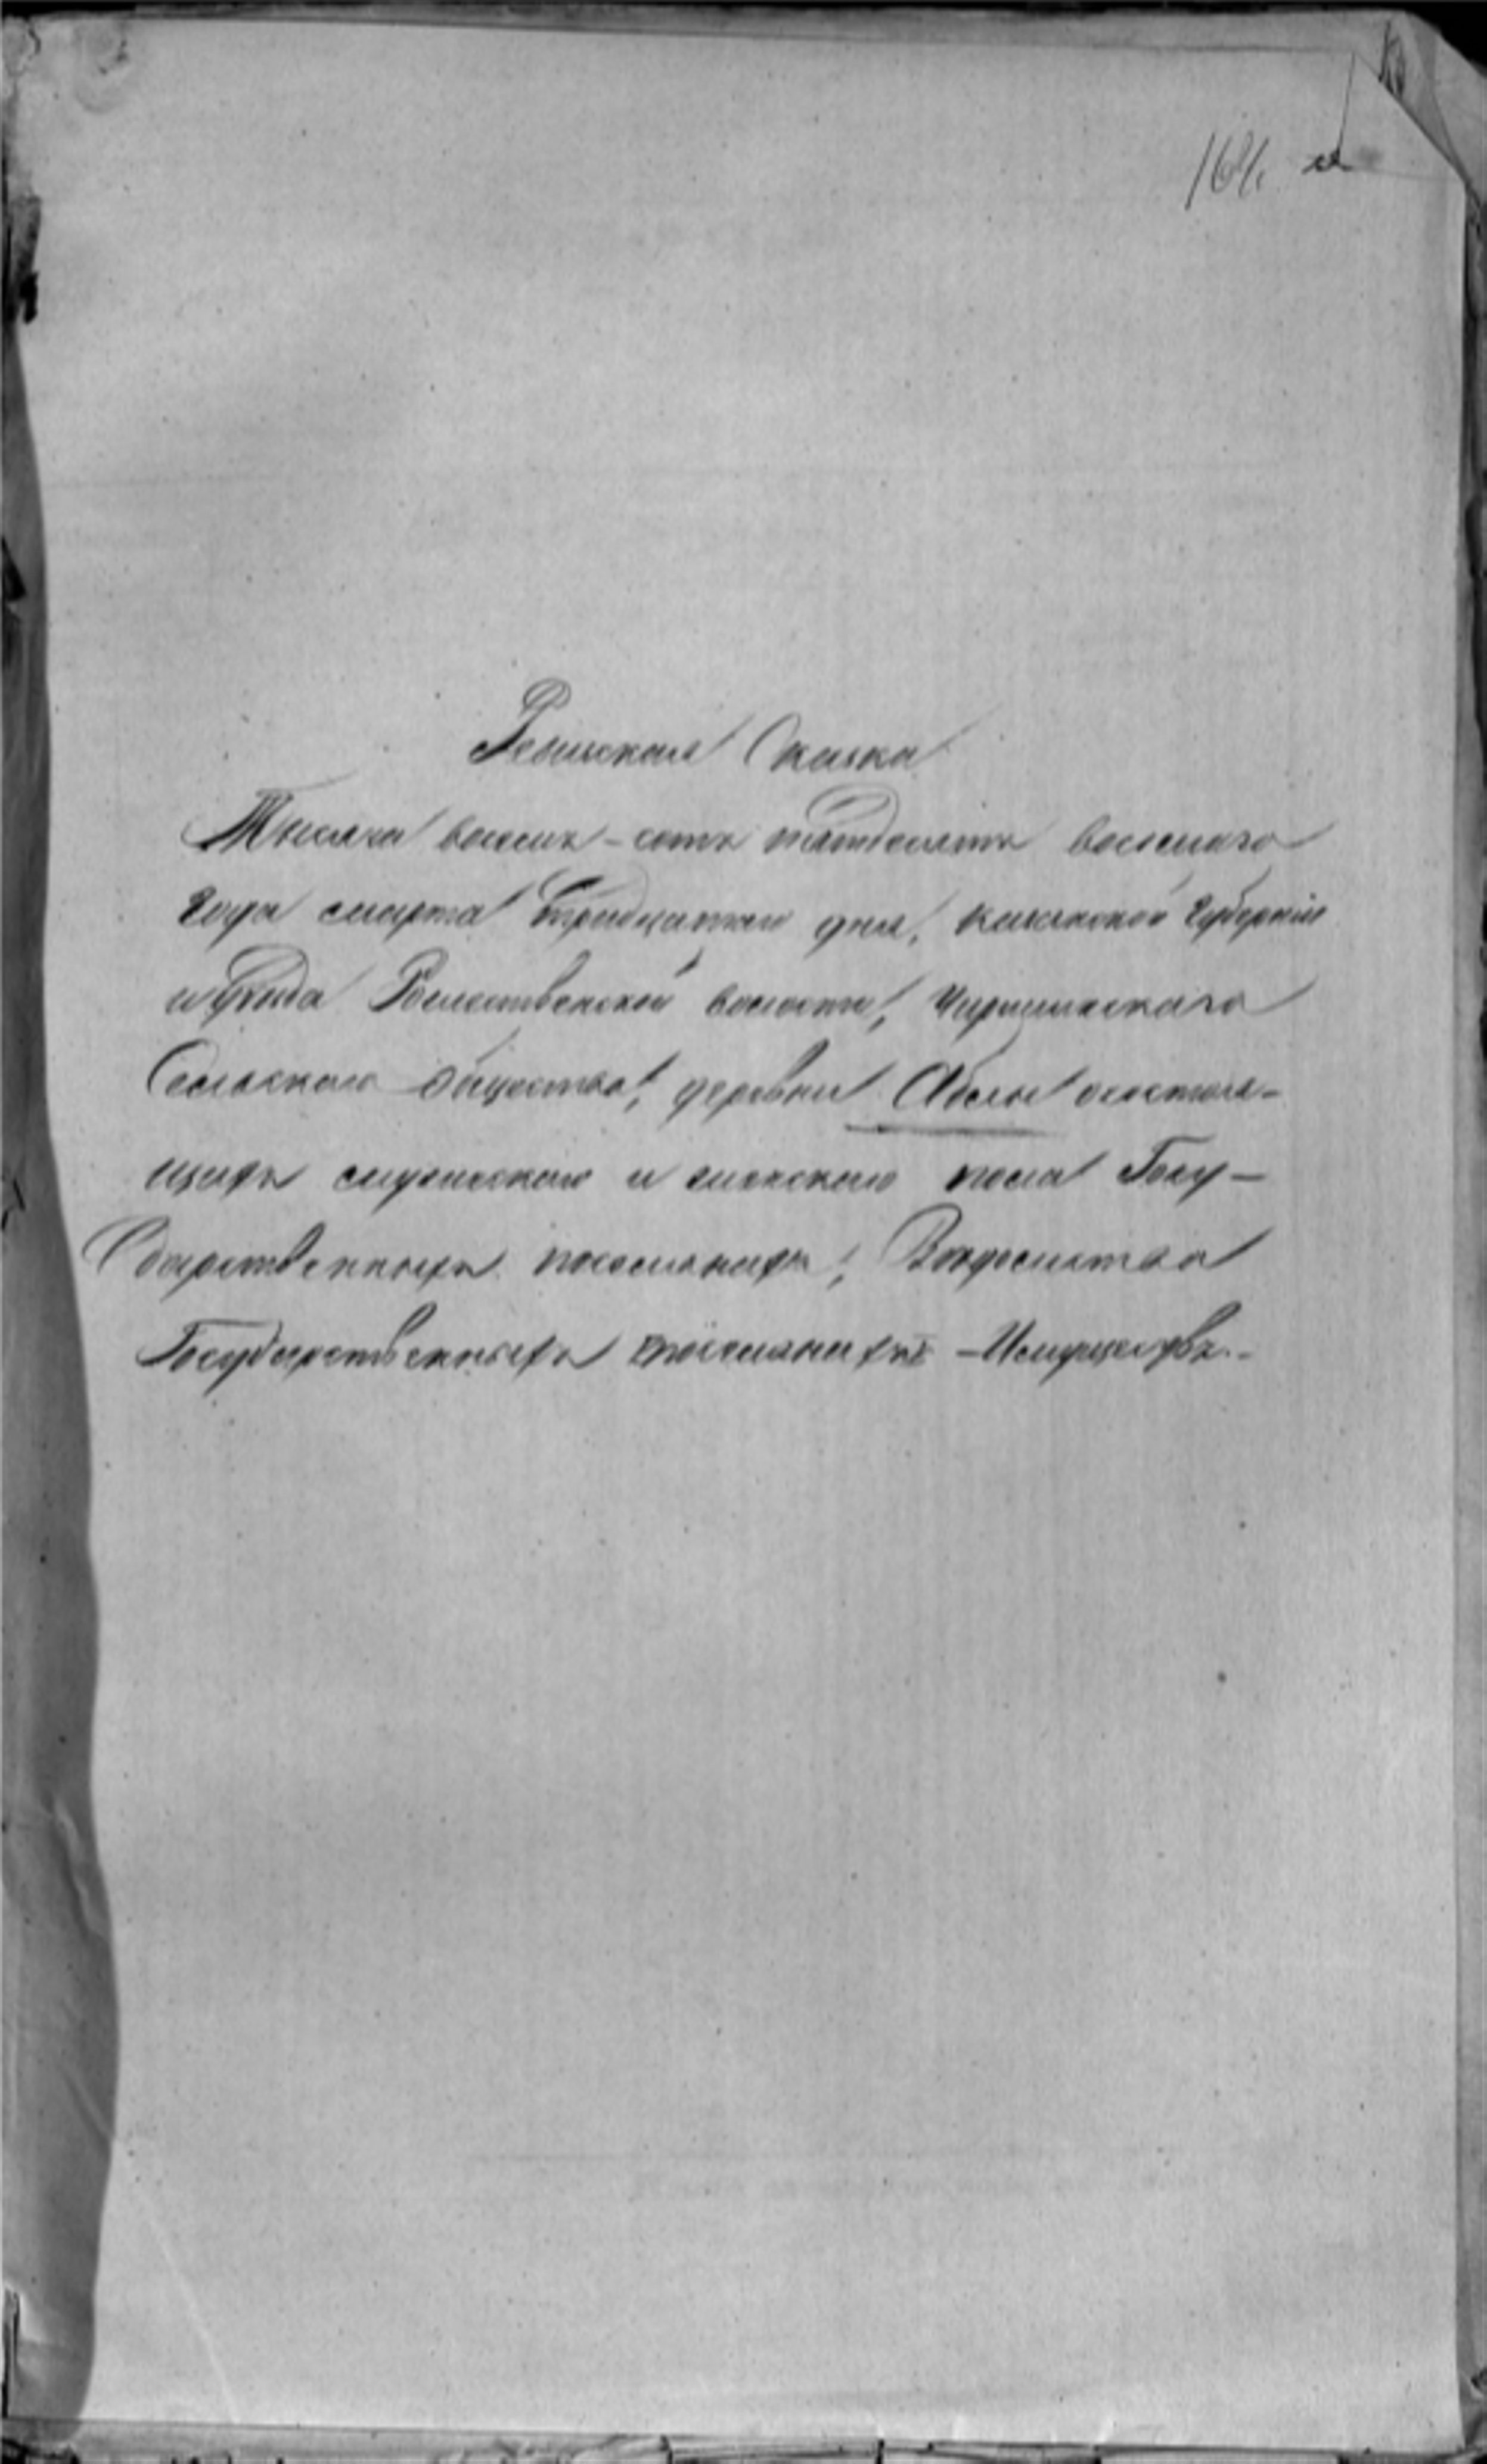 Ревизская Сказка
Тысяча восемь-сотъ пятдесятъ восьмаго
года марта тридцатаго дня, казанской Губернiи
и уѣзда Рожественской волости, Чирпинскаго
Сельскаго общества, деревни Абалы о состоя-
щихъ мужескаго и женскаго пола Госу-
дарственныхъ поселянахъ, Вѣдомства
Государственныхъ Имуществъ.-